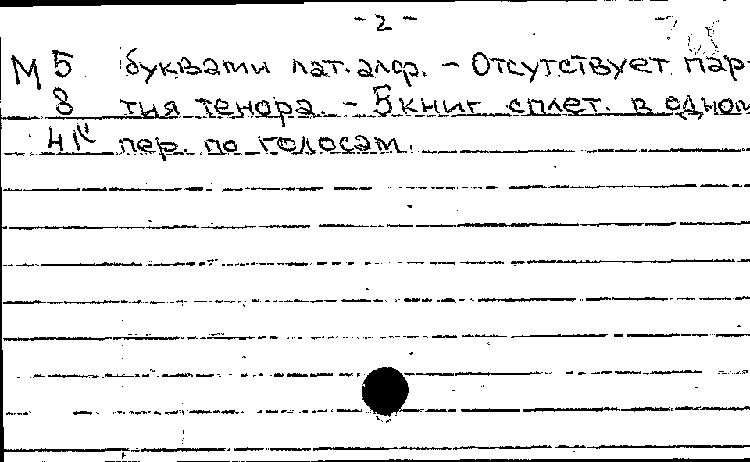 - 2 -
М 5 буквами лат. алф. - Отсутствует пар-
8 тия тенора. - 5 книг сплет. в одном
41 пер. по голосам.